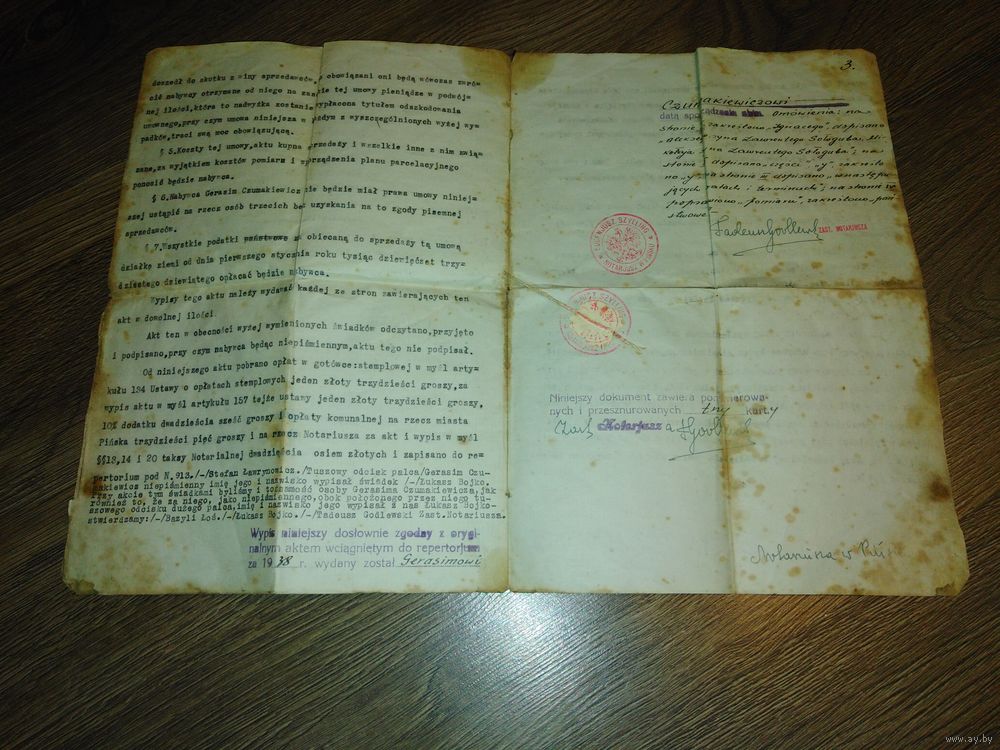 doszedł do skutku z winy sprzedawców, obowiązani oni będą wówczas zwró=
cić nabywcy otrzymane od niego na zas tej umowy pieniądze w podwój=
nej ilości, która to nadwyżka zostanie wypłacona tytułem odszkodowania
umownego, przy czym umowa niniejsza w każdym z wyszczególnionych wyżej wy=
padków, traci swą moc obowiązującą.
§ 5. Koszty tej umowy, aktu kupna sprzedaży i wszelkie inne z nim zwią=
zane, za wyjątkiem kosztów pomiaru i sporządzenia planu parcelacyjnego
ponosić będzie nabywca.
§ 6. Nabywca Gerasim Czumakiewicz nie będzie miał prawa umowy niniej=
szej ustąpić na rzecz osób trzecich bez uzyskania na to zgody pisemnej
sprzedawców.
§ 7. Wszystkie podatki państwowe za obiecaną do sprzedaży tą umową
działkę ziemi od dnia pierwszego stycznia roku tysiąc dziewięćset trzy=
dziestego dziewiątego opłacać będzie nabywca.
Wypisy tego aktu należy wydawać każdej ze stron zawierających ten
akt w dowolnej ilości.
Akt ten w obecności wyżej wymienionych świadków odczytano, przyjęto
i podpisano, przy czym nabywca będąc niepiśmiennym, aktu tego nie podpisał.
Od niniejszego aktu pobrano opłat w gotówce: stemplowej w myśl arty=
kułu 134 Ustawy o opłatach stemplowych jeden złoty trzydzieści groszy, za
wypis aktu w myśl artykułu 157 tejże ustawy jeden złoty trzydzieści groszy,
10% dodatku dwadzieścia sześć groszy i opłaty komunalnej na rzecz miasta
Pińska trzydzieści pięć groszy i na rzecz Notariusza za akt i wypis w myśl
§§ 13,14 i 20 taksy Notarialnej dwadzieścia osiem złotych i zapisano do re=
pertorium pod N. 913. /-/Stefan Ławrynowicz./Tuszowy odcisk palca/Gerasim Czu-
makiewicz niepiśmienny imię jego i nazwisko wypisał świadek /-/Łukasz Bojko.
Przy akcie tym świadkami byliśmy i tożsamość osoby Gerasima Czumakiewicza, jak
również to, że za niego, jako niepiśmiennego, obok położonego przez niego tu-
szowego odcisku dużego palca, imię i nazwisko jego wypisał z nas Łukasz Bojko-
stwierdzamy: /-/Bazyli Łoś./-/Łukasz Bojko./-/Tadeusz Godlewski Zast. Notariusza.
Wypis niniejszy dosłownie zgodny z orygi-
nalnym aktem wciągniętym do repertorjum
za 1938 r. wydany został Gerasimowi
3.
Czumakiewiczowi
datą sporządzenia Omówienia: na
stronie zakreślono "Ignacego", dopisano
Zawrentego Sołoguba
Zawrentego Sołoguba"; na
stronie dopisano "części" "y", zakreślo
no "y" na stronie III dopisano "w następu-
jących ratach i terminach"; na stronie
poprawiono "pomiaru", zakreślono "pań
stwowe"
ZAST. NOTARJUSZA
Niniejszy dokument zawiera ponumerowa-
nych i przesznurowanych trzy karty
Zast. Notarjusz a
Notariusza w
www.ay.by